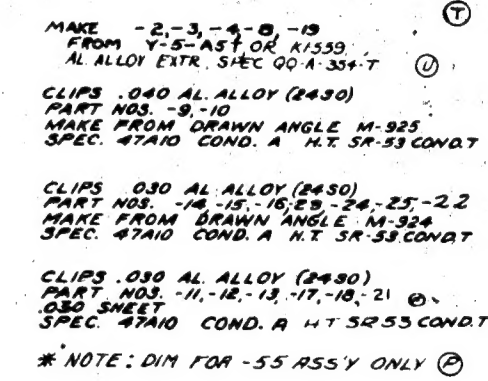 T
MAKE -2,-3,-4,-8,-19
FROM Y-5-A5† OR K1559
AL. ALLOY EXTR. SPEC QQ-A-354-T U
CLIPS .040 AL. ALLOY (24SO)
PART NOS. -9,-10
MAKE FROM DRAWN ANGLE M-925
SPEC. 47A10 COND. A H.T. SR-53 COND.T
CLIPS .030 AL. ALLOY (24SO)
PART NOS. -14,-15,-16,23,-24,-25,-22
MAKE FROM DRAWN ANGLE M-924
SPEC. 47A10 COND. A H.T. SR-53 COND.T
CLIPS .030 AL. ALLOY (24SO)
PART NOS. -11,-12,-13,-17,-18,-21
.030 SHEET
SPEC. 47A10 COND. A HT SR53 COND.T
* NOTE: DIM FOR -55 ASS'Y ONLY P